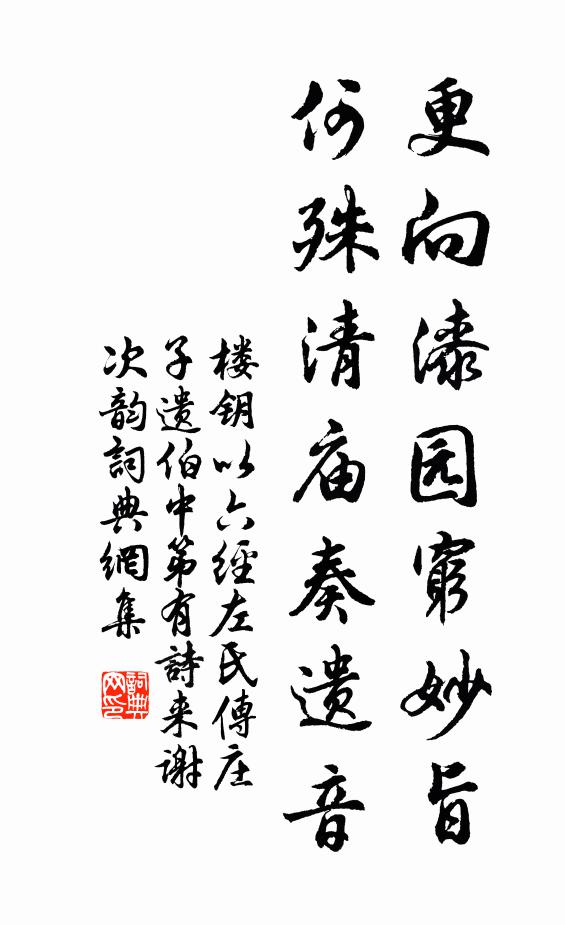 更向漆园穷妙旨
何殊清庙奏遗音
楼钥以六經左氏傳庄
子遗伯中第有詩来谢
次韵詞典網集
詞典网印